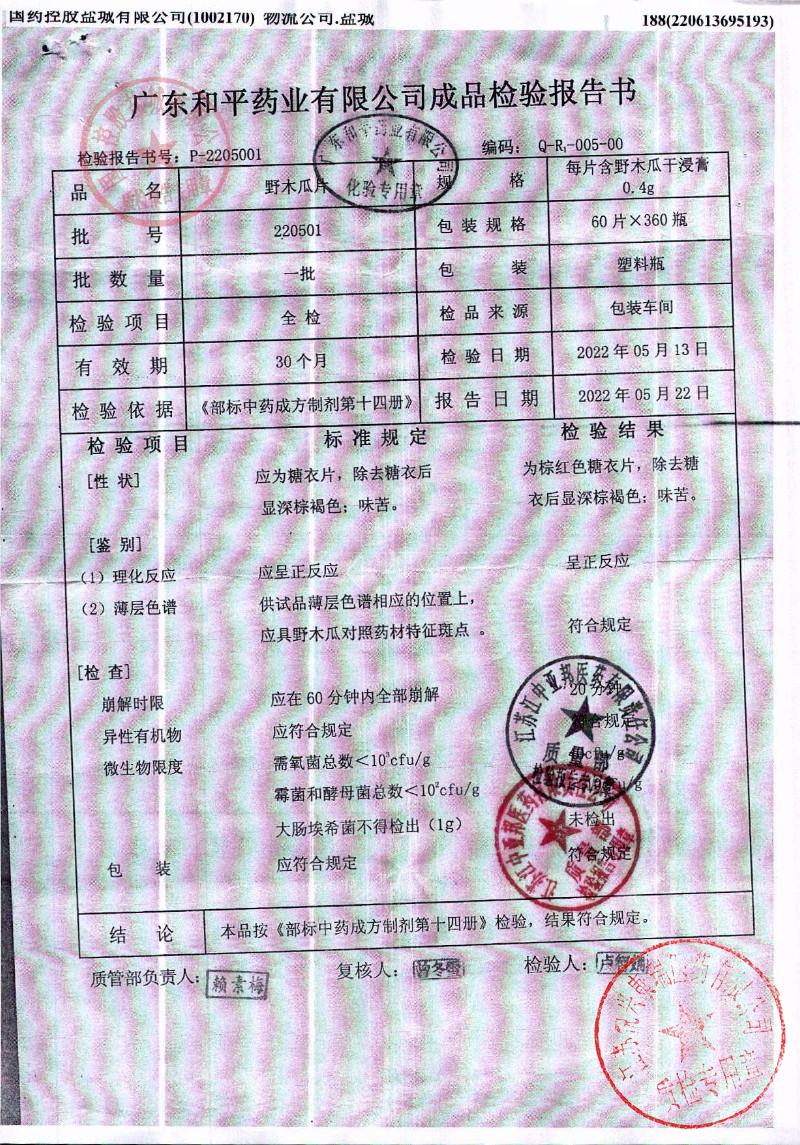 国药控股盐城有限公司(1002170) 物流公司.盐城 188(220613695193)
广东和平药业有限公司成品检验报告书
检验报告书号：P-2205001 编码： Q-R₁-005-00
品 名 野木瓜片 规 格 每片含野木瓜干浸膏 0.4g
批 号 220501 包装规格 60片×360瓶
批数量 一批 包 装 塑料瓶
检验项目 全检 检品来源 包装车间
有效期 30个月 检验日期 2022年05月13日
检验依据 《部标中药成方制剂第十四册》 报告日期 2022年05月22日
检验项目 标准规定 检验结果
[性状] 应为糖衣片，除去糖衣后 为棕红色糖衣片，除去糖
显深棕褐色；味苦。 衣后显深棕褐色；味苦。
[鉴别]
(1) 理化反应 应呈正反应 呈正反应
(2) 薄层色谱 供试品薄层色谱相应的位置上，
应具野木瓜对照药材特征斑点 。 符合规定
[检查]
崩解时限 应在60分钟内全部崩解 20分钟
异性有机物 应符合规定 符合规定
微生物限度 需氧菌总数＜10³cfu/g
霉菌和酵母菌总数＜10²cfu/g
大肠埃希菌不得检出（1g） 未检出
包 装 应符合规定 符合规定
结 论 本品按《部标中药成方制剂第十四册》检验，结果符合规定。
质管部负责人： 赖素梅 复核人： 检验人：
广东和平药业有限公司
化验专用章
江苏江中亚邦医药有限责任公司
质量部
质检专用章